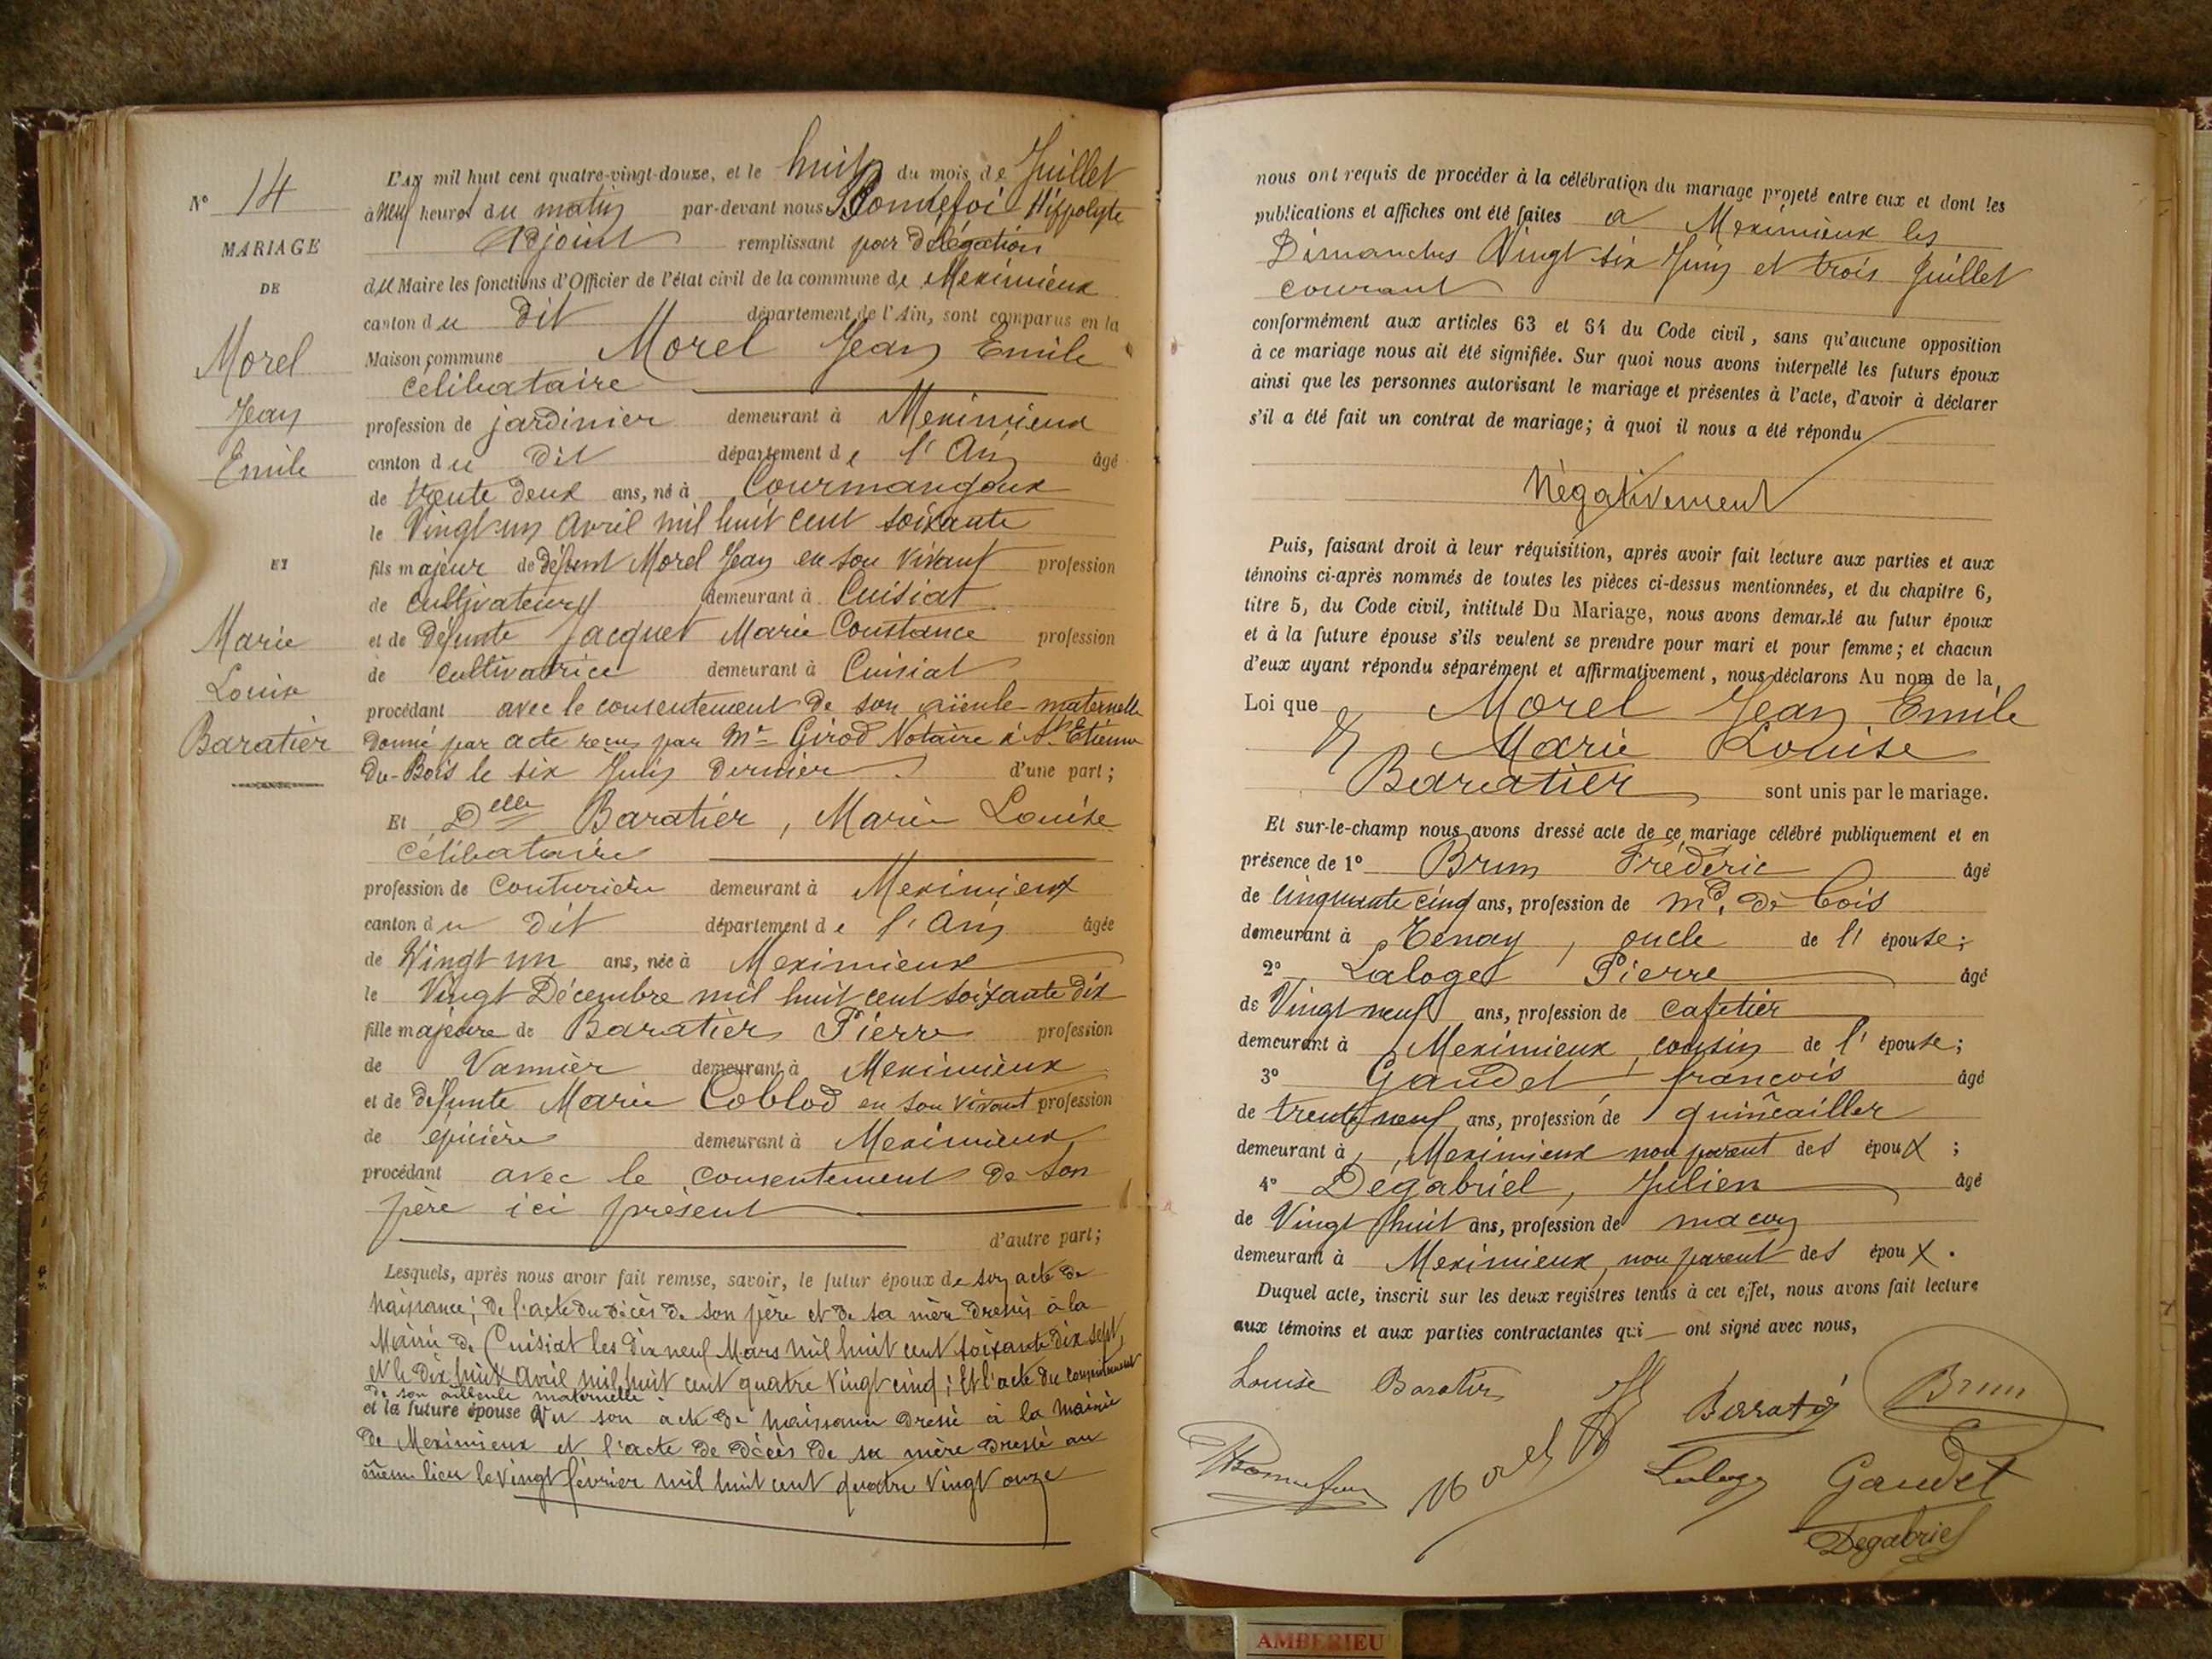 N° 14
MARIAGE
DE
Morel
Jean
Emile
ET
Marie
Louise
Baratier
L'AN mil huit cent quatre-vingt-douze, et le huit du mois de Juillet
à neuf heures du matin par-devant nous Bonnefoi Hippolyte
Adjoint remplissant par Délégation
du Maire les fonctions d'Officier de l'état civil de la commune de Meximieux
canton du dit département de l'Ain, sont comparus en la
Maison commune Morel Jean Emile
célibataire
profession de jardinier demeurant à Meximieux
canton du dit département de l'Ain âgé
de trente deux ans, né à Courmangoux
le Vingt un Avril mil huit cent soixante
fils majeur de défunt Morel Jean en son vivant profession
de cultivateur demeurant à Cuisiat
et de défunte Jacquet Marie Constance profession
de cultivatrice demeurant à Cuisiat
procédant avec le consentement de son aïeule maternelle
donné par acte reçu par Mr Girod Notaire à St Etienne
du-Bois le six Juin dernier d'une part;
Et Delle Baratier, Marie Louise
célibataire
profession de couturière demeurant à Meximieux
canton du dit département de l'Ain âgée
de Vingt un ans, née à Meximieux
le Vingt Décembre mil huit cent soixante dix
fille majeure de Baratier Pierre profession
de Vannier demeurant à Meximieux
et de défunte Marie Coblod en son vivant profession
de épicière demeurant à Meximieux
procédant avec le consentement de son
père ici présent
d'autre part;
Lesquels, après nous avoir fait remise, savoir, le futur époux de son acte de
naissance; de l'acte du décès de son père et de sa mère dressés à la
Mairie de Cuisiat les dix neuf Mars mil huit cent soixante dix sept,
et le dix huit avril mil huit cent quatre vingt cinq; Et l'acte du consentement
de son aïlleule maternelle
et la future épouse Vu son acte de naissance dressé à la mairie
de Meximieux et l'acte de décès de sa mère dressé au
même lieu le vingt février mil huit cent quatre vingt onze
nous ont requis de procéder à la célébration du mariage projeté entre eux et dont les
publications et affiches ont été faites à Meximieux les
Dimanches Vingt six Juin et trois Juillet
courant
conformément aux articles 63 et 64 du Code civil, sans qu'aucune opposition
à ce mariage nous ait été signifiée. Sur quoi nous avons interpellé les futurs époux
ainsi que les personnes autorisant le mariage et présentes à l'acte, d'avoir à déclarer
s'il a été fait un contrat de mariage; à quoi il nous a été répondu
Négativement
Puis, faisant droit à leur réquisition, après avoir fait lecture aux parties et aux
témoins ci-après nommés de toutes les pièces ci-dessus mentionnées, et du chapitre 6,
titre 5, du Code civil, intitulé Du Mariage, nous avons demandé au futur époux
et à la future épouse s'ils veulent se prendre pour mari et pour femme; et chacun
d'eux ayant répondu séparément et affirmativement, nous déclarons Au nom de la
Loi que Morel Jean Emile
Et Marie Louise
Baratier sont unis par le mariage.
Et sur-le-champ nous avons dressé acte de ce mariage célébré publiquement et en
présence de 1° Brun Frédéric âgé
de cinquante cinq ans, profession de md. de bois
demeurant à Tenay, oncle de l'épouse;
2° Laloge Pierre âgé
de Vingt neuf ans, profession de cafetier
demeurant à Meximieux, cousin de l'épouse;
3° Gaudet françois âgé
de trente neuf ans, profession de quincailler
demeurant à Meximieux non parent des époux;
4° Dégabriel, Julien âgé
de Vingt huit ans, profession de maçon
demeurant à Meximieux, non parent des époux.
Duquel acte, inscrit sur les deux registres tenus à cet effet, nous avons fait lecture
aux témoins et aux parties contractantes qui ont signé avec nous,
Louise Baratier
Baratié
Brun
Morel
Laloge
Gaudet
Degabriel
AMBERIEU